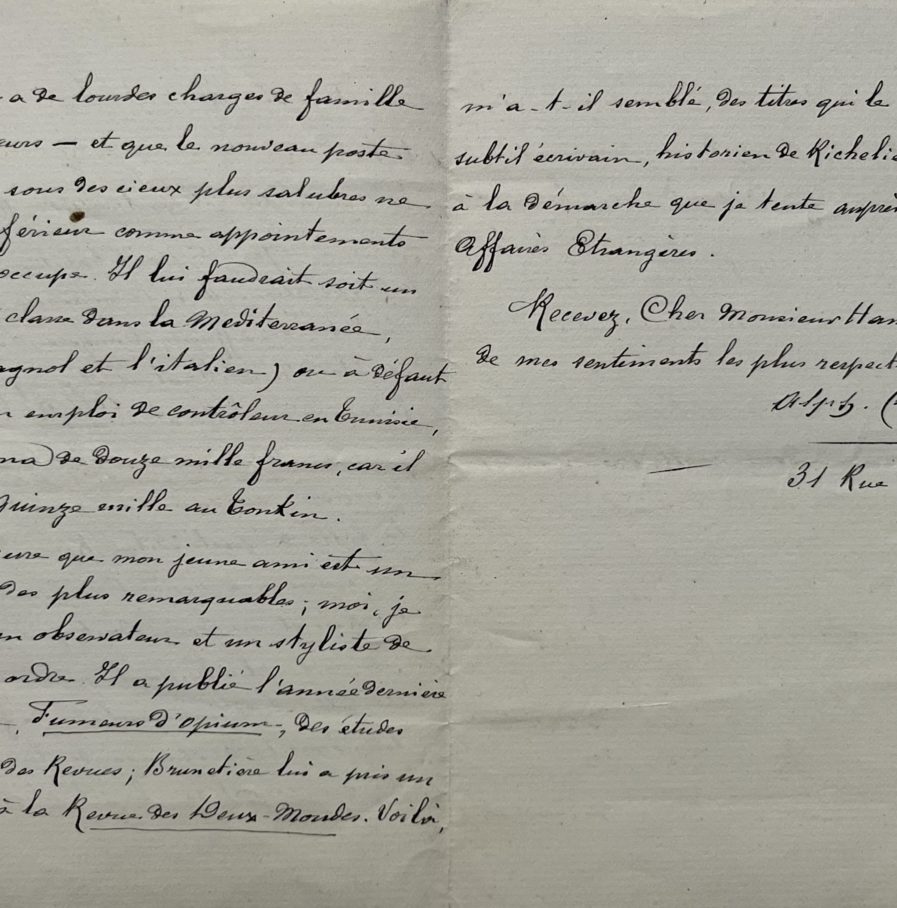 a de lourdes charges de famille
eurs — et que le nouveau poste
sous des cieux plus salubres ne
férieur comme appointements
occupe. Il lui faudrait soit un
classe dans la Mediterranée,
agnol et l'italien) ou à défaut
n emploi de contrôleur en Tunisie,
ma) de douze mille francs, car il
quinze mille au Tonkin.
ure que mon jeune ami est un
des plus remarquables; moi, je
un observateur et un styliste de
ordre. Il a publié l'année dernière
Fumeurs d'opium, des études
des Revues; Brunetière lui a pris un
à la Revue des Deux-Mondes. Voilà,
m'a-t-il semblé, des titres qui le
subtil écrivain, historien de Richelie
à la démarche que je tente auprè
Affaires Etrangères.
Recevez, Cher Monsieur Han
de mes sentiments les plus respect
Alph. (
31 Rue